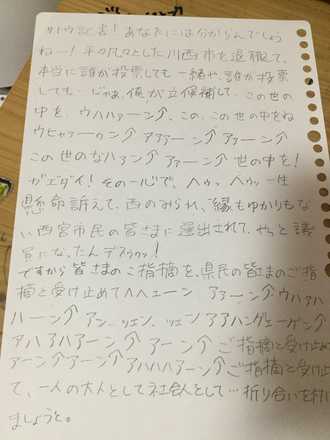 サトウ記者！あなたには分からんでしょう
ねー！平々凡々とした川西市を退職して、
本当に誰が投票しても一緒や、誰が投票
しても…じゃあ、俺が立候補して…この世の
中を、ウハハァーーン↑、この、この世の中をね
ウヒャァーゥゥン↑ アァァーン↑ アァーーン↑
この世のなハァン↑ アァーーン↑ 世の中を！
ガエダイ！その一心で、ヘゥッ ヘゥッー生
懸命訴えて、西のみられ、縁もゆかりもな
い西宮市民の皆さまに選出されて、やっと議
員になったんデスゥゥッ！
ですから皆さまのご指摘を、県民の皆さまのご指
摘と受け止めてヘヘェーーン アァーーン↑ウハァハ
ハーーン↑ アン、ツェン、ツェン アアハンゲェーゲン↑
アハアハアーーン↑ アーーン↑ ご指摘と受け止め
アーーン↑アーーン↑アハハハアーーン↑ご指摘と受け止め
て、一人の大人として社会人として…折り合いを付け
ましょうと。